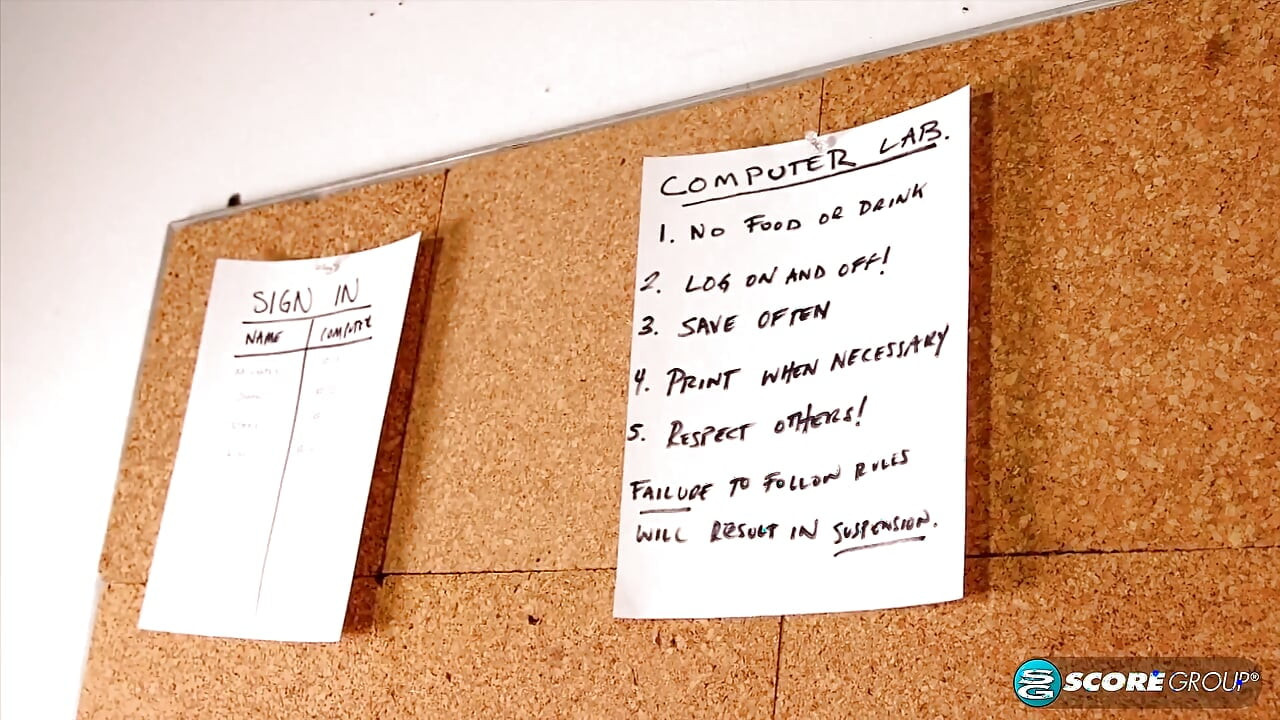 SIGN IN
NAME COMPUTER
COMPUTER LAB.
1. NO FOOD OR DRINK
2. LOG ON AND OFF!
3. SAVE OFTEN
4. PRINT WHEN NECESSARY
5. RESPECT OTHERS!
FAILURE TO FOLLOW RULES
WILL RESULT IN SUSPENSION.
SCORE GROUP®